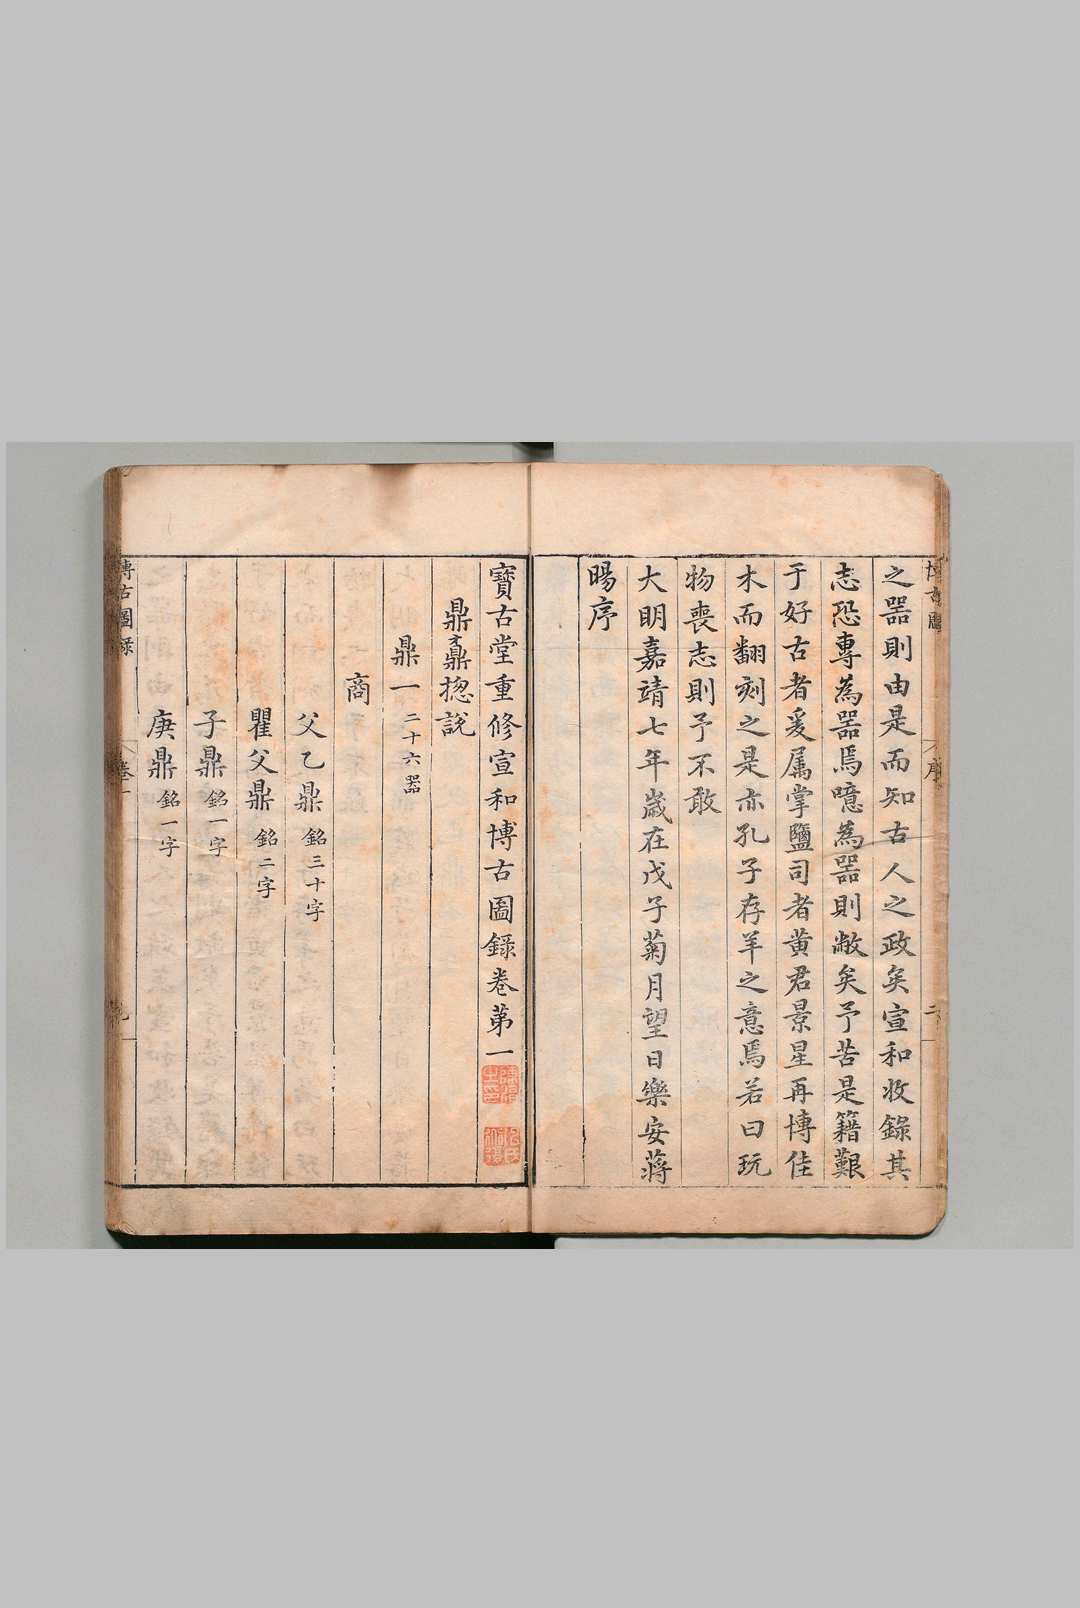 之器則由是而知古人之政矣宣和收錄其
志恐專為器焉噫為器則敝矣予苦是籍艱
于好古者爰属掌鹽司者黄君景星再博佳
木而翻刻之是亦孔子存羊之意焉若曰玩
物喪志則予不敢
大明嘉靖七年歲在戊子菊月望日樂安蔣
暘序
寶古堂重修宣和博古圖錄卷苐一
鼎鼒揔說
鼎一 二十六器
商
父乙鼎 銘三十字
瞿父鼎 銘二字
子鼎 銘一字
庚鼎 銘一字
博古圖錄 卷一